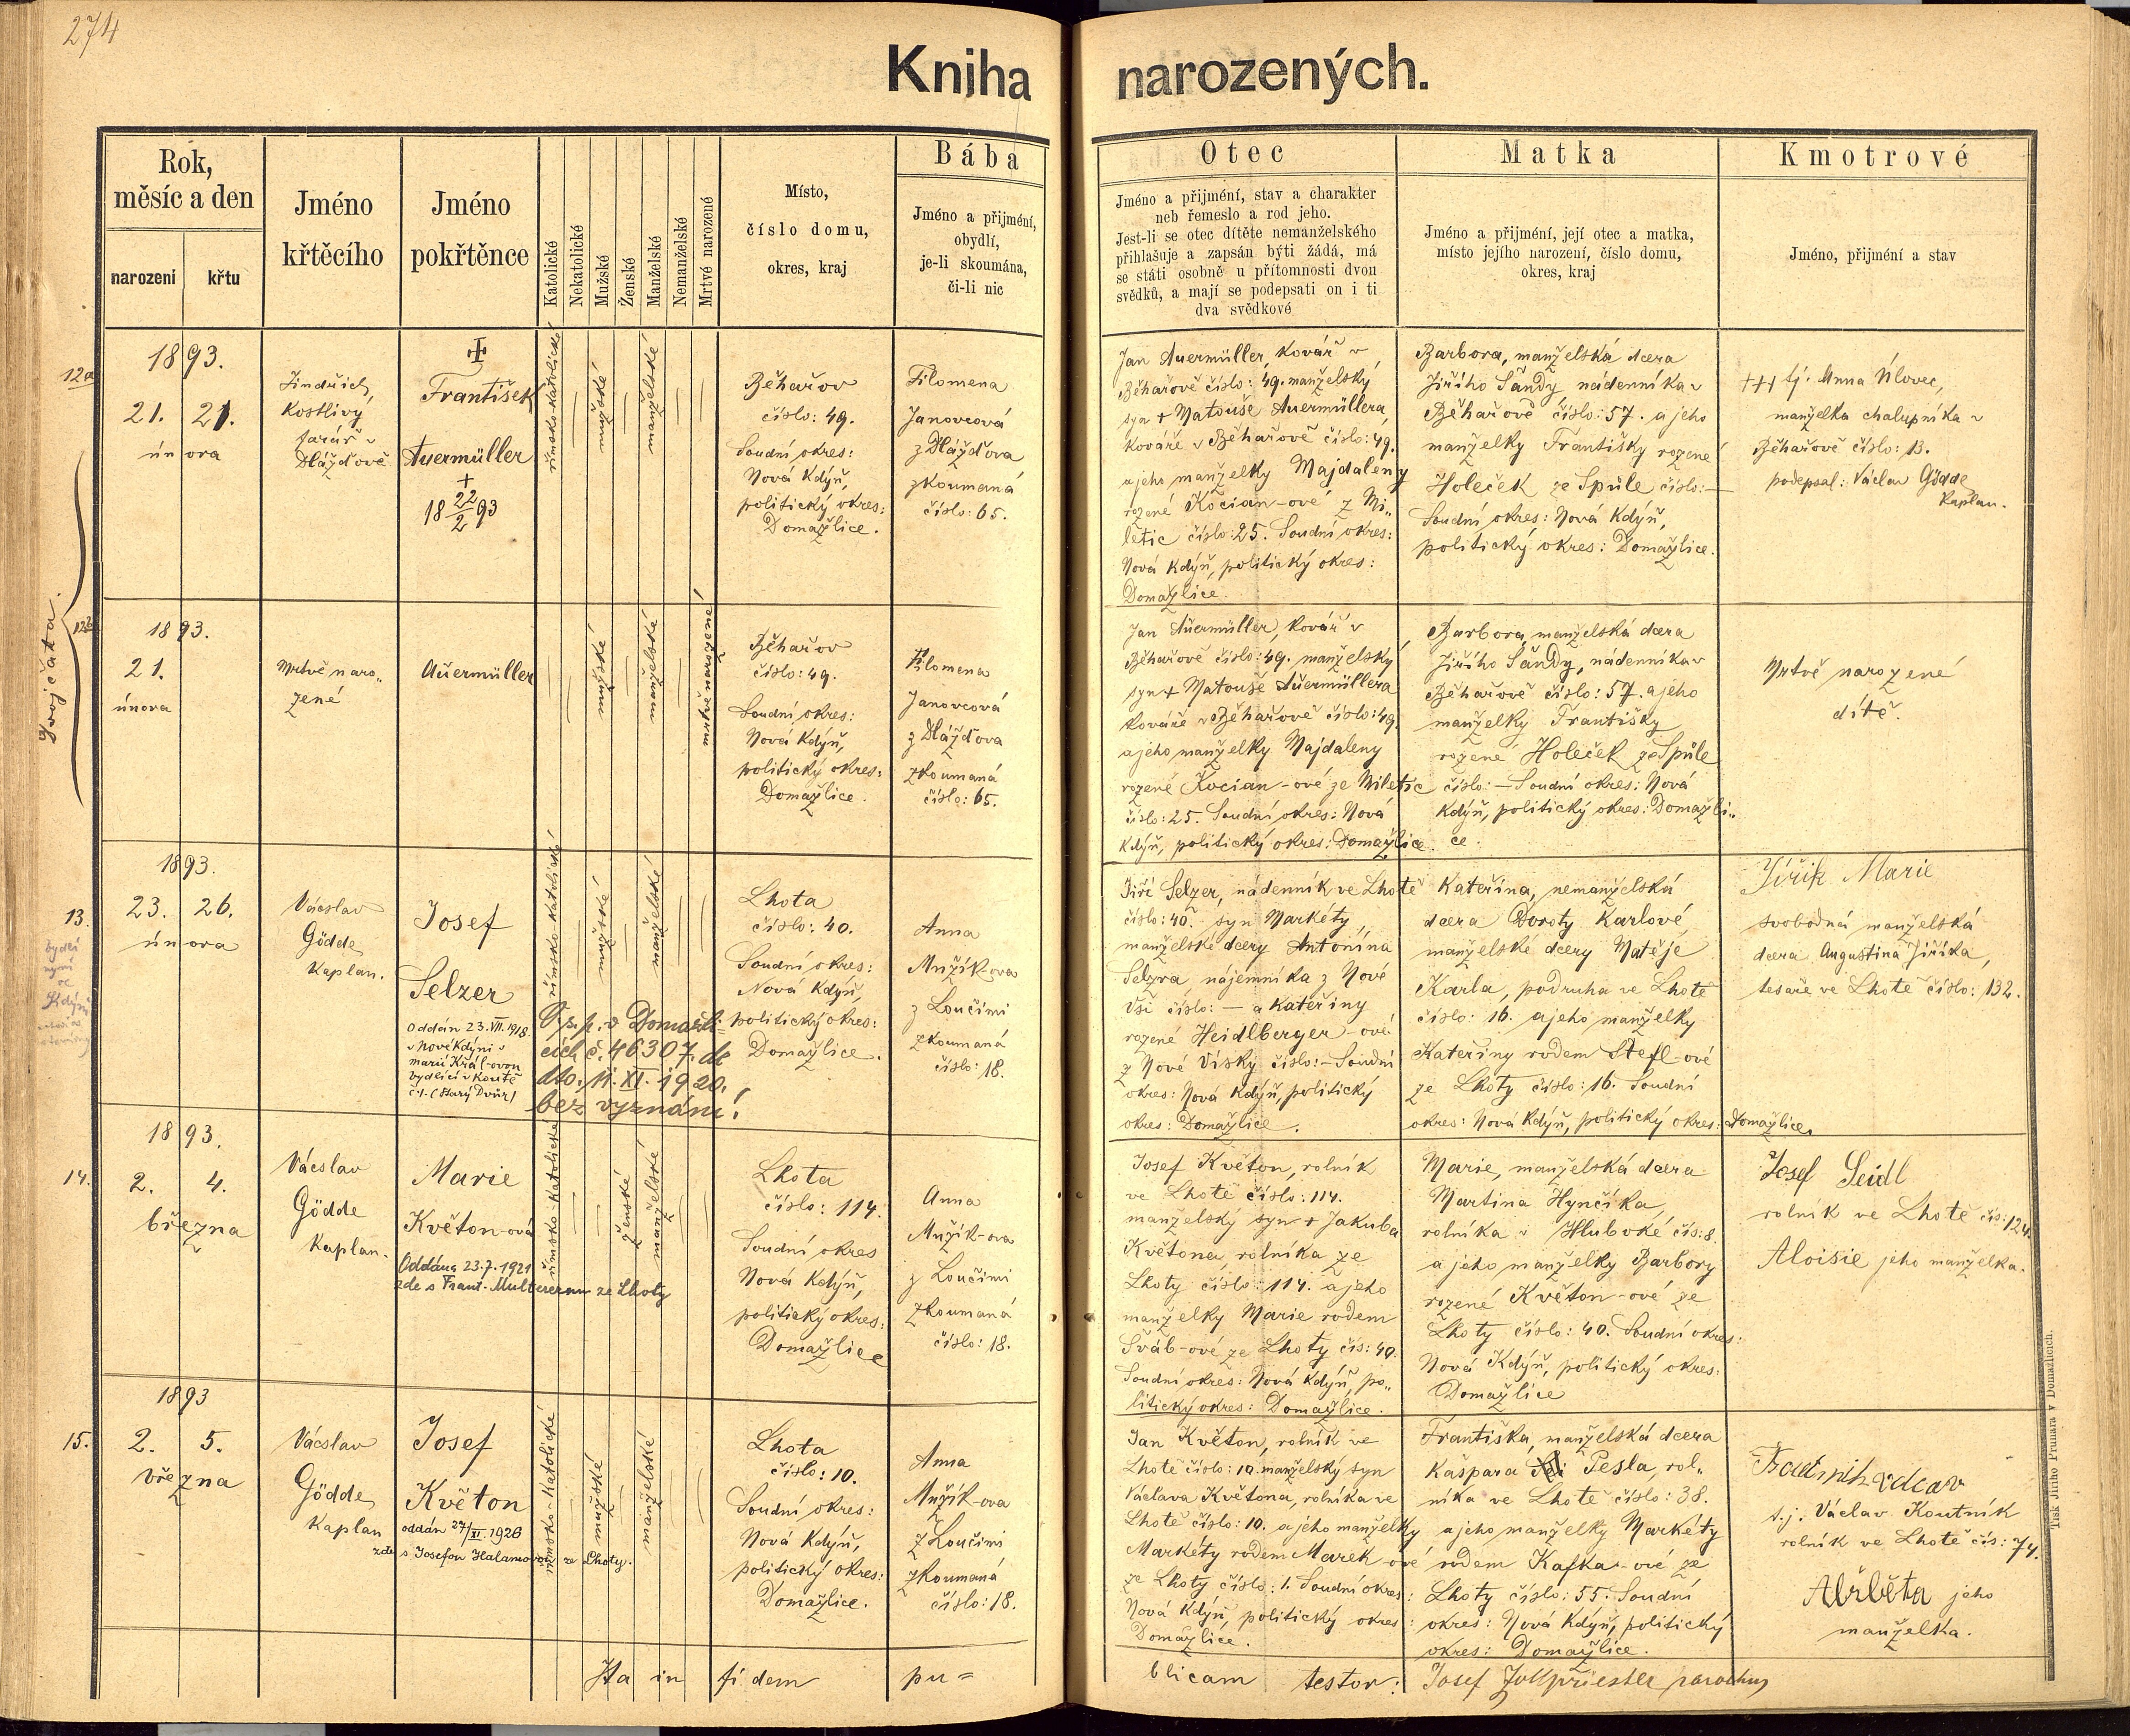 274
Kniha narozených.
Rok,
měsíc a den
narození
křtu
Jméno
křtěcího
Jméno
pokřtěnce
Katolické
Nekatolické
Mužské
Ženské
Manželské
Nemanželské
Mrtvé narozené
Místo,
číslo domu,
okres, kraj
Bába
Jméno a přijmění,
obydlí,
je-li skoumána,
či-li nic
Otec
Jméno a přijmění, stav a charakter
neb řemeslo a rod jeho.
Jest-li se otec dítěte nemanželského
přihlašuje a zapsán býti žádá, má
se státi osobně u přítomnosti dvou
svědků, a mají se podepsati on i ti
dva svědkové
Matka
Jméno a přijmění, její otec a matka,
místo jejího narození, číslo domu,
okres, kraj
Kmotrové
Jméno, přijmění a stav
Dvojčata.
12a
1893.
21. 21.
února
Jindřich
Kostlivý
farář v
Dlážďově
František
Auermüller
+
18 22/2 93
římsko-katolické
mužské
manželské
Běhařov
číslo: 49.
Soudní okres:
Nová Kdýň,
politický okres:
Domažlice.
Filomena
Janovcová
z Dlážďova
zkoumaná
číslo: 65.
Jan Auermüller, kovář v
Běhařově číslo: 49. manželský
syn + Matouše Auermüllera,
kováře v Běhařově číslo: 49.
a jeho manželky Majdaleny
rozené Kocian-ové z Mi„
letic číslo: 25. Soudní okres:
Nová Kdýň, politický okres:
Domažlice.
Barbora, manželská dcera
Jiřího Šandy, nádenníka v
Běhařově číslo: 57. a jeho
manželky Františky rozené
Holeček ze Spůle číslo: —
Soudní okres: Nová Kdýň,
politický okres: Domažlice.
+++ tj. Anna Vílovec,
manželka chalupníka v
Běhařově číslo: 13.
podepsal: Václav Gödde
Kaplan.
12b
1893.
21.
února
Mrtvě naro„
zené
Auermüller
mužské
manželské
mrtvě narozené
Běhařov
číslo: 49.
Soudní okres:
Nová Kdýň,
politický okres:
Domažlice.
Filomena
Janovcová
z Dlážďova
zkoumaná
číslo: 65.
Jan Auermüller, kovář v
Běhařově číslo: 49. manželský
syn + Matouše Auermüllera
kováře v Běhařově číslo: 49.
a jeho manželky Majdaleny
rozené Kocian-ové ze Miletic
číslo: 25. Soudní okres: Nová
Kdýň, politický okres: Domažlice.
Barbora, manželská dcera
Jiřího Šandy, nádenníka v
Běhařově číslo: 57. a jeho
manželky Františky
rozené Holeček ze Spůle
číslo: — Soudní okres: Nová
Kdýň, politický okres: Domažli„
ce.
Mrtvě narozené
dítě.
13.
bydlí
nyní
ve
Kdýni
1893.
23. 26.
února
Václav
Gödde
Kaplan.
Josef
Selzer
Oddán 23. VII. 1918
v Nové Kdýni s
Marií Král-ovou
bydlící v Koutě
č. 1. (Starý Dvůr)
římsko-katolické
mužské
manželské
O.s.p. v Domažli-
cích č. 46307. de
dto. 11. XI. 1920.
bez vyznání!
Lhota
číslo: 40.
Soudní okres:
Nová Kdýň,
politický okres:
Domažlice.
Anna
Mužík-ova
z Loučimi
zkoumaná
číslo: 18.
Jiří Selzer, nádenník ve Lhotě
číslo: 40. syn Markéty,
manželské dcery Antonína
Selzra, nájemníka z Nové
Vsi číslo: — a Kateřiny
rozené Heidlberger-ové
z Nové Vísky číslo: — Soudní
okres: Nová Kdýň, politický
okres: Domažlice.
Kateřina, nemanželská
dcera Doroty Karlové
manželské dcery Matěje
Karla, podruha ve Lhotě
číslo: 16. a jeho manželky
Kateřiny rodem Štefl-ové
ze Lhoty číslo: 16. Soudní
okres: Nová Kdýň, politický okres: Domažlice.
Jiřík Marie
svobodná manželská
dcera Augustina Jiříka,
tesaře ve Lhotě číslo: 132.
14.
1893.
2. 4.
března
Václav
Gödde
Kaplan.
Marie
Květon-ová
Oddána 23.7.1921
zde s Frant. Multererem ze Lhoty
římsko-katolické
ženské
manželské
Lhota
číslo: 114.
Soudní okres
Nová Kdýň,
politický okres:
Domažlice
Anna
Mužík-ova
z Loučimi
zkoumaná
číslo: 18.
Josef Květon, rolník
ve Lhotě číslo: 114.
manželský syn + Jakuba
Květona, rolníka ze
Lhoty číslo: 114. a jeho
manželky Marie rodem
Šváb-ové ze Lhoty čís: 40.
Soudní okres: Nová Kdýň, po„
litický okres: Domažlice.
Marie, manželská dcera
Martina Hynčíka,
rolníka v Hluboké čís: 8.
a jeho manželky Barbory
rozené Květon-ové ze
Lhoty číslo: 40. Soudní okres:
Nová Kdýň, politický okres:
Domažlice
Josef Seidl
rolník ve Lhotě čís: 124.
Aloisie jeho manželka.
15.
1893
2. 5.
března
Václav
Gödde
Kaplan
Josef
Květon
oddán 27/XI. 1926
zde s Josefou Halamovou ze Lhoty.
římsko-katolické
mužské
manželské
Lhota
číslo: 10.
Soudní okres:
Nová Kdýň,
politický okres:
Domažlice.
Anna
Mužík-ova
z Loučimi
zkoumaná
číslo: 18.
Jan Květon, rolník ve
Lhotě číslo: 10. manželský syn
Václava Květona, rolníka ve
Lhotě číslo: 10. a jeho manželky
Markéty rodem Marek-ové
ze Lhoty číslo: 1. Soudní okres:
Nová Kdýň, politický okres:
Domažlice.
Františka, manželská dcera
Kašpara Pesla, rol„
níka ve Lhotě číslo: 38.
a jeho manželky Markéty
rodem Kafka-ové ze
Lhoty číslo: 55. Soudní
okres: Nová Kdýň, politický
okres: Domažlice.
t.j. Václav Koutník
rolník ve Lhotě čís: 74.
Alžběta jeho
manželka.
Ita in fidem pu=
blicam testor: Josef Zollpriester parochus
Tisk Jiřího Prunara v Domažlicích.